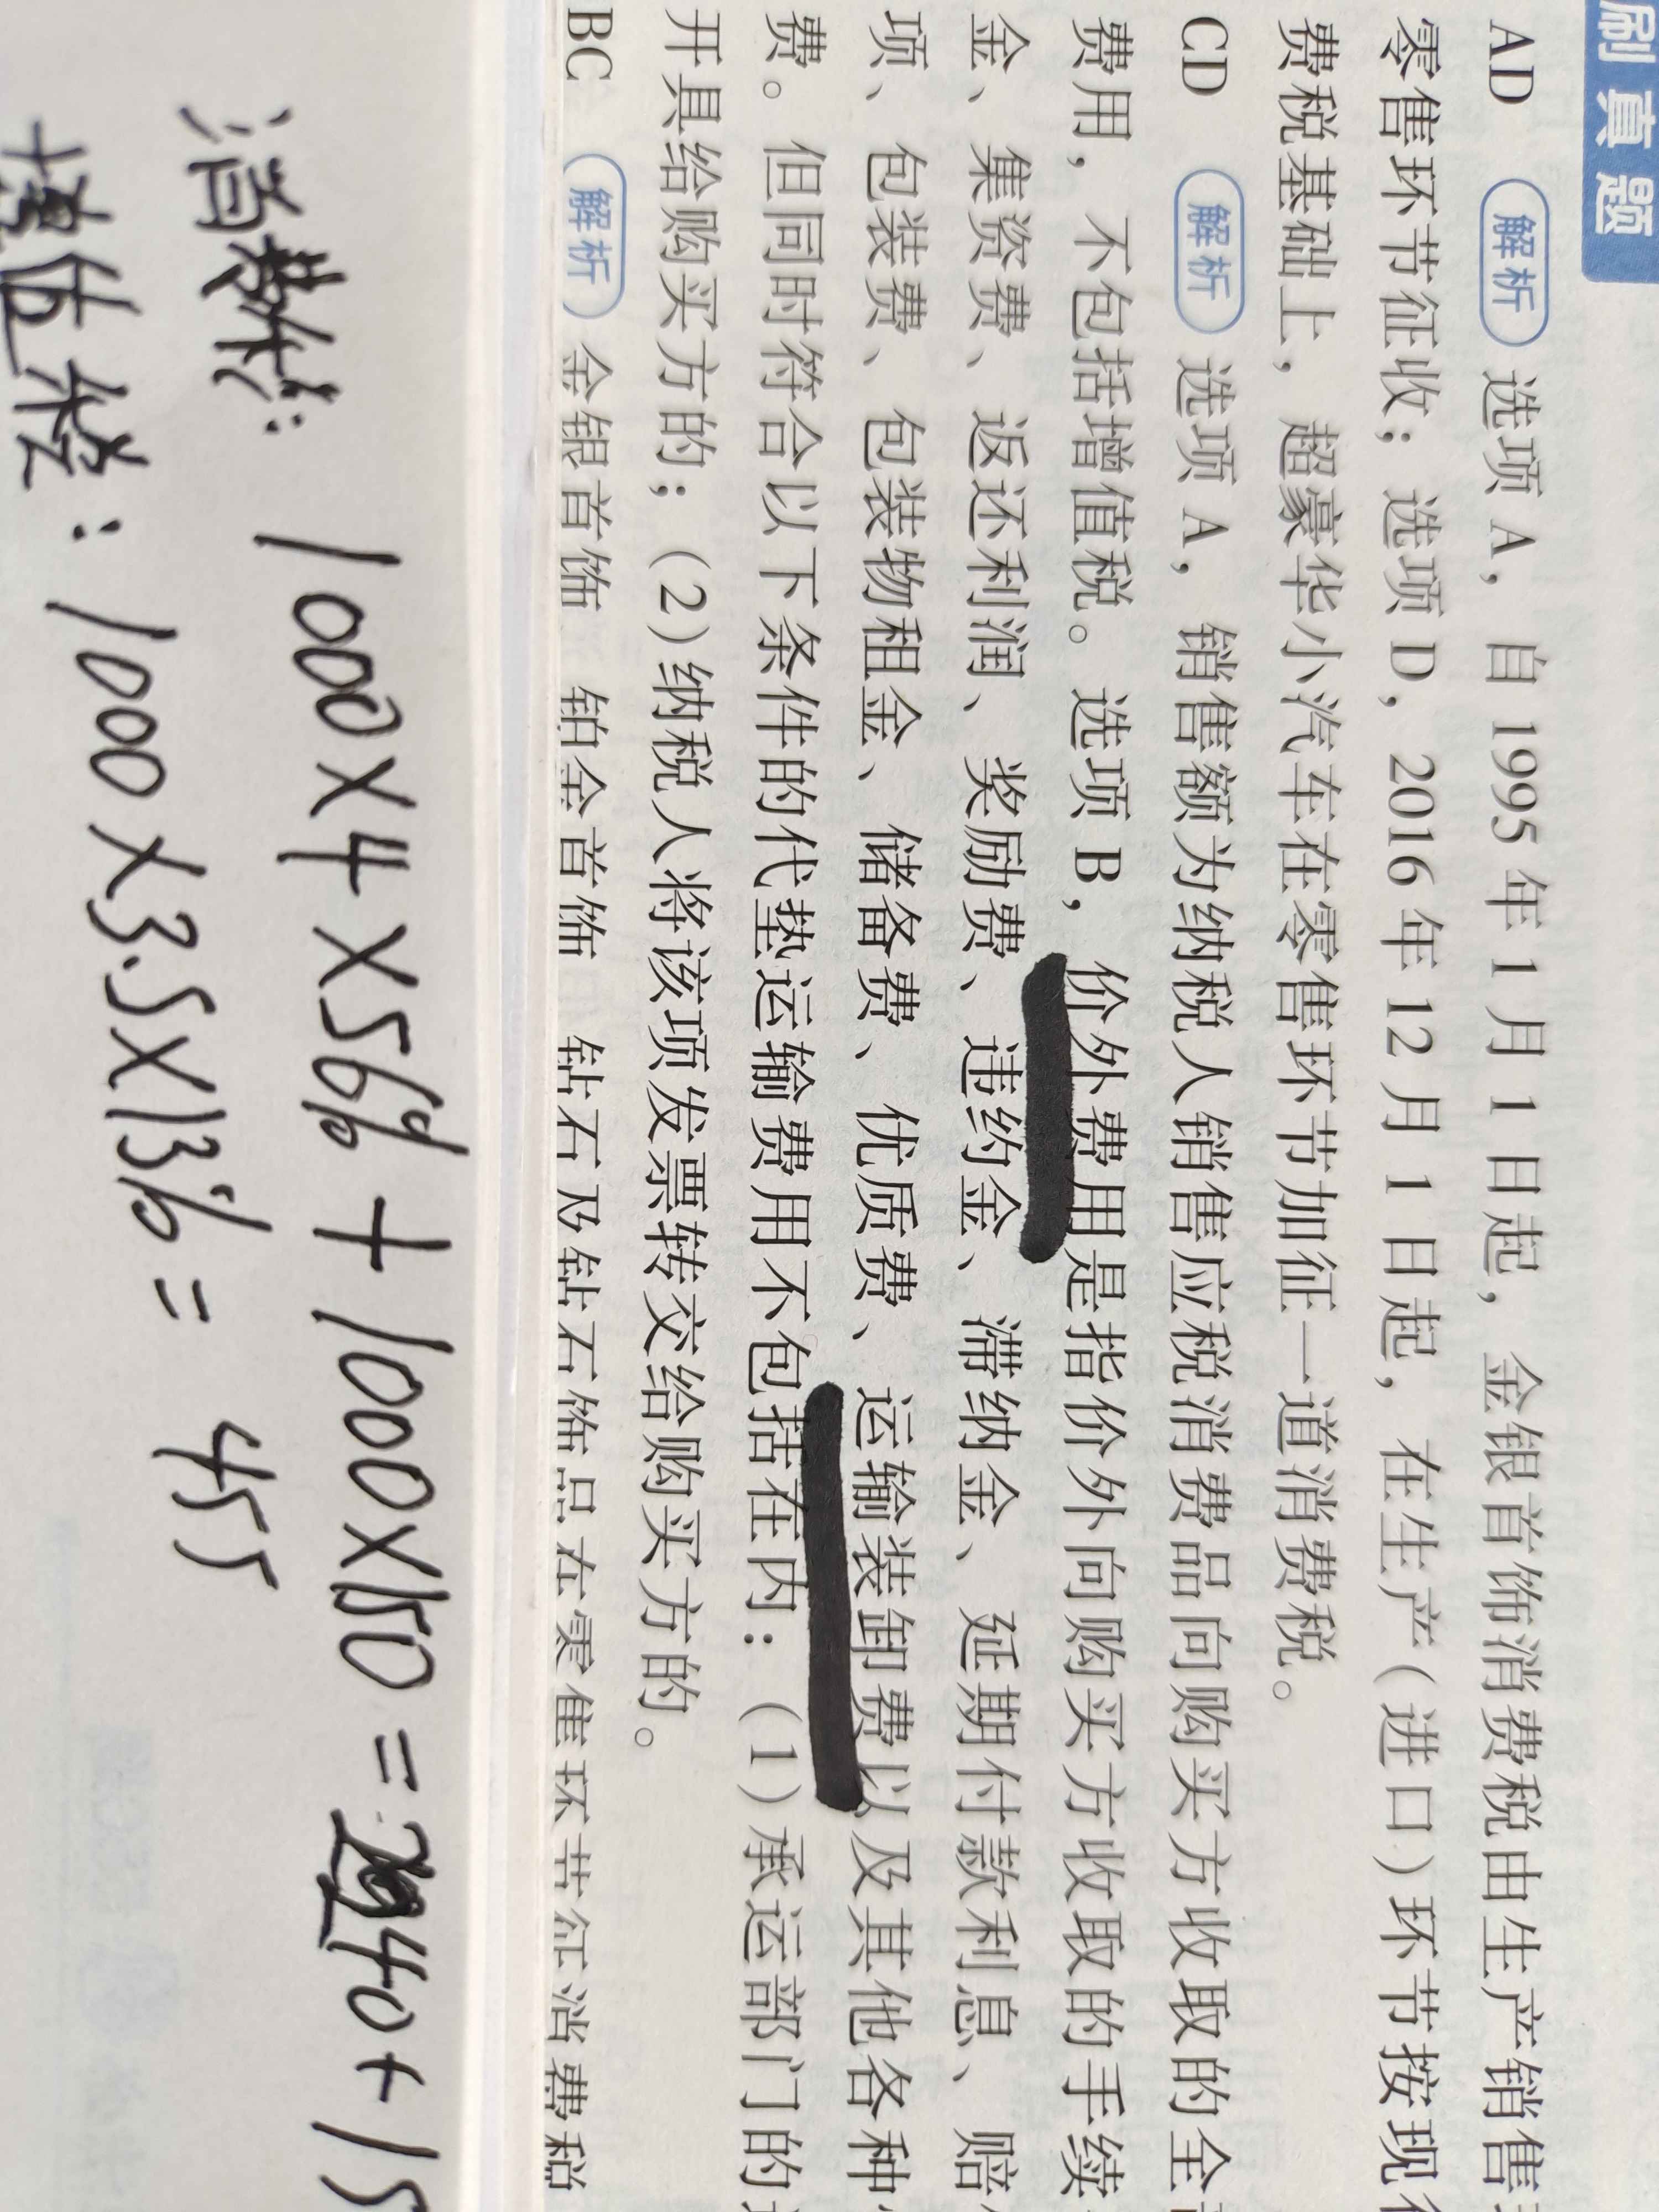 刷真题
AD 解析 选项 A，自 1995 年 1 月 1 日起，金银首饰消费税由生产销售
零售环节征收；选项 D，2016 年 12 月 1 日起，在生产（进口）环节按现行
费税基础上，超豪华小汽车在零售环节加征一道消费税。
CD 解析 选项 A，销售额为纳税人销售应税消费品向购买方收取的全
费用，不包括增值税。选项 B，价外费用是指价外向购买方收取的手续
金、集资费、返还利润、奖励费、违约金、滞纳金、延期付款利息、赔
项、包装费、包装物租金、储备费、优质费、运输装卸费以及其他各种
费。但同时符合以下条件的代垫运输费用不包括在内：（1）承运部门的
开具给购买方的；（2）纳税人将该项发票转交给购买方的。
BC 解析 金银首饰 铂金首饰 钻石及钻石饰品在零售环节征消费税
消费税： 1000×4×56%+1000×150=2240+15
增值税：1000×3.5×13%= 455